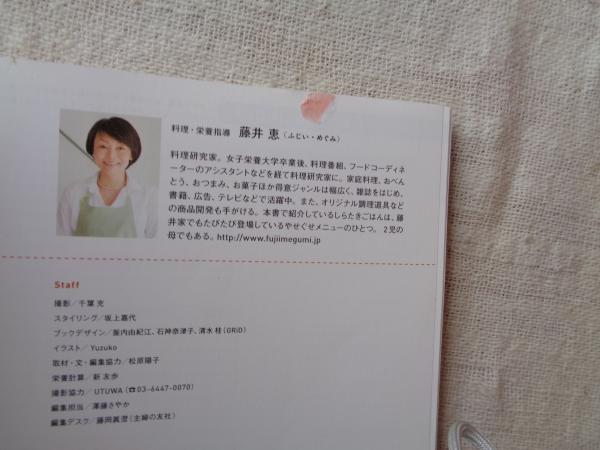 料理・栄養指導　藤井 恵（ふじい・めぐみ）
料理研究家。女子栄養大学卒業後、料理番組、フードコーディネ
ーターのアシスタントなどを経て料理研究家に。家庭料理、おべん
とう、おつまみ、お菓子ほか得意ジャンルは幅広く、雑誌をはじめ、
書籍、広告、テレビなどで活躍中。また、オリジナル調理道具など
の商品開発も手がける。本書で紹介しているしらたきごはんは、藤
井家でもたびたび登場しているやせぐせメニューのひとつ。2児の
母でもある。http://www.fujiimegumi.jp
Staff
撮影／千葉 充
スタイリング／坂上嘉代
ブックデザイン／飯内由紀江、石神奈津子、清水 桂（GRiD）
イラスト／Yuzuko
取材・文・編集協力／松原陽子
栄養計算／新 友歩
撮影協力／UTUWA（☎03-6447-0070）
編集担当／澤藤さやか
編集デスク／藤岡眞澄（主婦の友社）